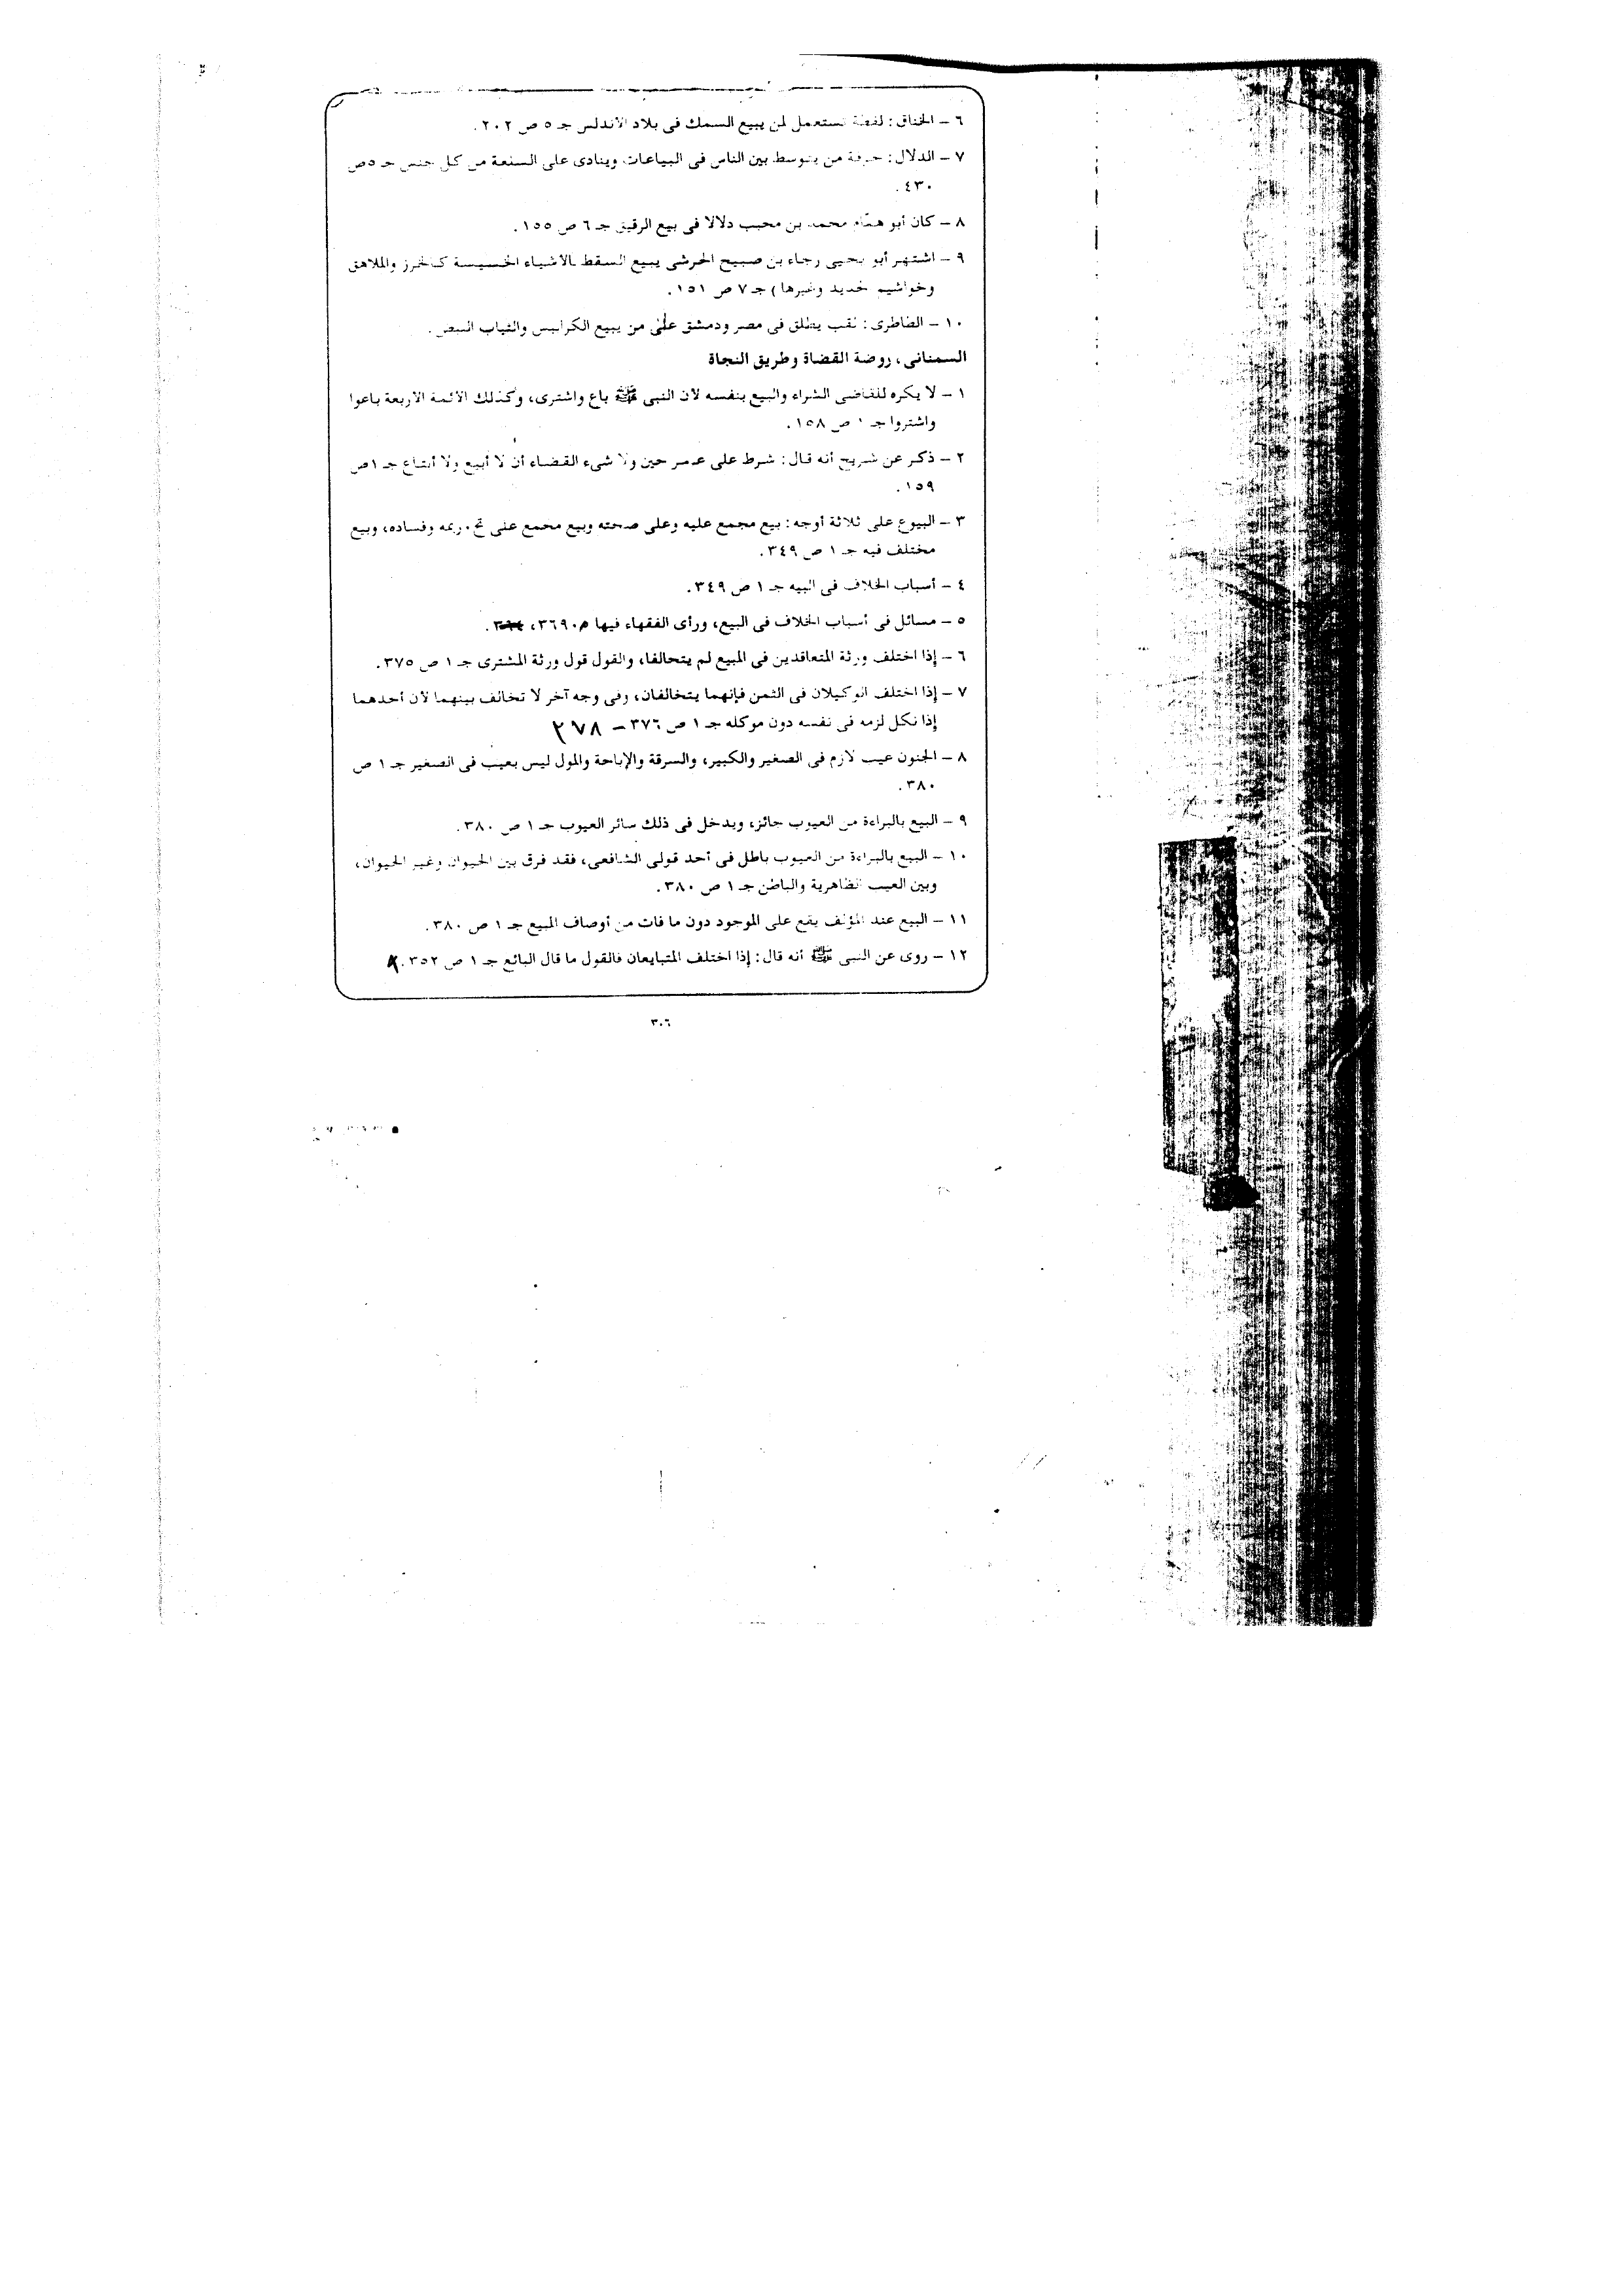 ٦ – الخناق: لفظة تستعمل لمن يبيع السمك فى بلاد الأندلس جـ ٥ ص ٢٠٢.
٧ – الدلال: حرفة من يتوسط بين الناس فى البياعات وينادى على السلعة من كل جنس جـ ٥ص
٤٣٠.
٨ – كان أبو همام محمد بن محبب دلالا فى بيع الرقيق جـ ٦ ص ١٥٥.
٩ – اشتهر أبو يحيى رجاء بن صبيح الحرشى يبيع السقط الأشياء الخسيسة كالخرز والملاهق
وخواتيم حديد وغيرها) جـ ٧ ص ١٥١.
١٠ – الطاطرى: لقب يطلق فى مصر ودمشق على من يبيع الكرابيس والثياب البيض.
السمنانى، روضة القضاة وطريق النجاة
١ – لا يكره للقاضى الشراء والبيع بنفسه لأن النبى ﷺ باع واشترى، وكذلك الأئمة الأربعة باعوا
واشتروا جـ ١ ص ١٥٨.
٢ – ذكر عن شريح أنه قال: شرط على عمر حين ولا شىء القضاء أن لا أبيع ولا أبتاع جـ ١ص
١٥٩.
٣ – البيوع على ثلاثة أوجه: بيع مجمع عليه وعلى صحته وبيع مجمع على تحريمه وفساده، وبيع
مختلف فيه جـ ١ ص ٣٤٩.
٤ – أسباب الخلاف فى البيه جـ ١ ص ٣٤٩.
٥ – مسائل فى أسباب الخلاف فى البيع، ورأى الفقهاء فيها ٣٦٩٠،
٦ – إذا اختلف ورثة المتعاقدين فى المبيع لم يتحالفا، والقول قول ورثة المشترى جـ ١ ص ٣٧٥.
٧ – إذا اختلف الوكيلان فى الثمن فإنهما يتحالفان، وفى وجه آخر لا تحالف بينهما لأن أحدهما
إذا نكل لزمه فى نفسه دون موكله جـ ١ ص ٣٧٦ – ٢٧٨
٨ – الجنون عيب لازم فى الصغير والكبير، والسرقة والإباحة والمول ليس بعيب فى الصغير جـ ١ ص
٣٨٠.
٩ – البيع بالبراءة من العيوب جائز، ويدخل فى ذلك سائر العيوب جـ ١ ص ٣٨٠.
١٠ – البيع بالبراءة من العيوب باطل فى أحد قولى الشافعى، فقد فرق بين الحيوان وغير الحيوان،
وبين العيب الظاهرية والباطن جـ ١ ص ٣٨٠.
١١ – البيع عند المؤلف يقع على الموجود دون ما فات من أوصاف المبيع جـ ١ ص ٣٨٠.
١٢ – روى عن النبى ﷺ أنه قال: إذا اختلف المتبايعان فالقول ما قال البائع جـ ١ ص ٣٥٢.
٣٠٦